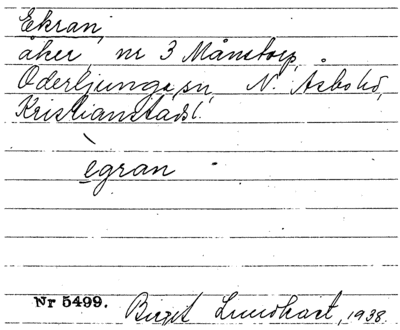 Ekran,
åker, nr 3 Månstorp,
Oderljunga sn, N. Åsbo hd,
Kristianstads l.
ègran
Nr 5499.
Birgit Lundkast, 1938